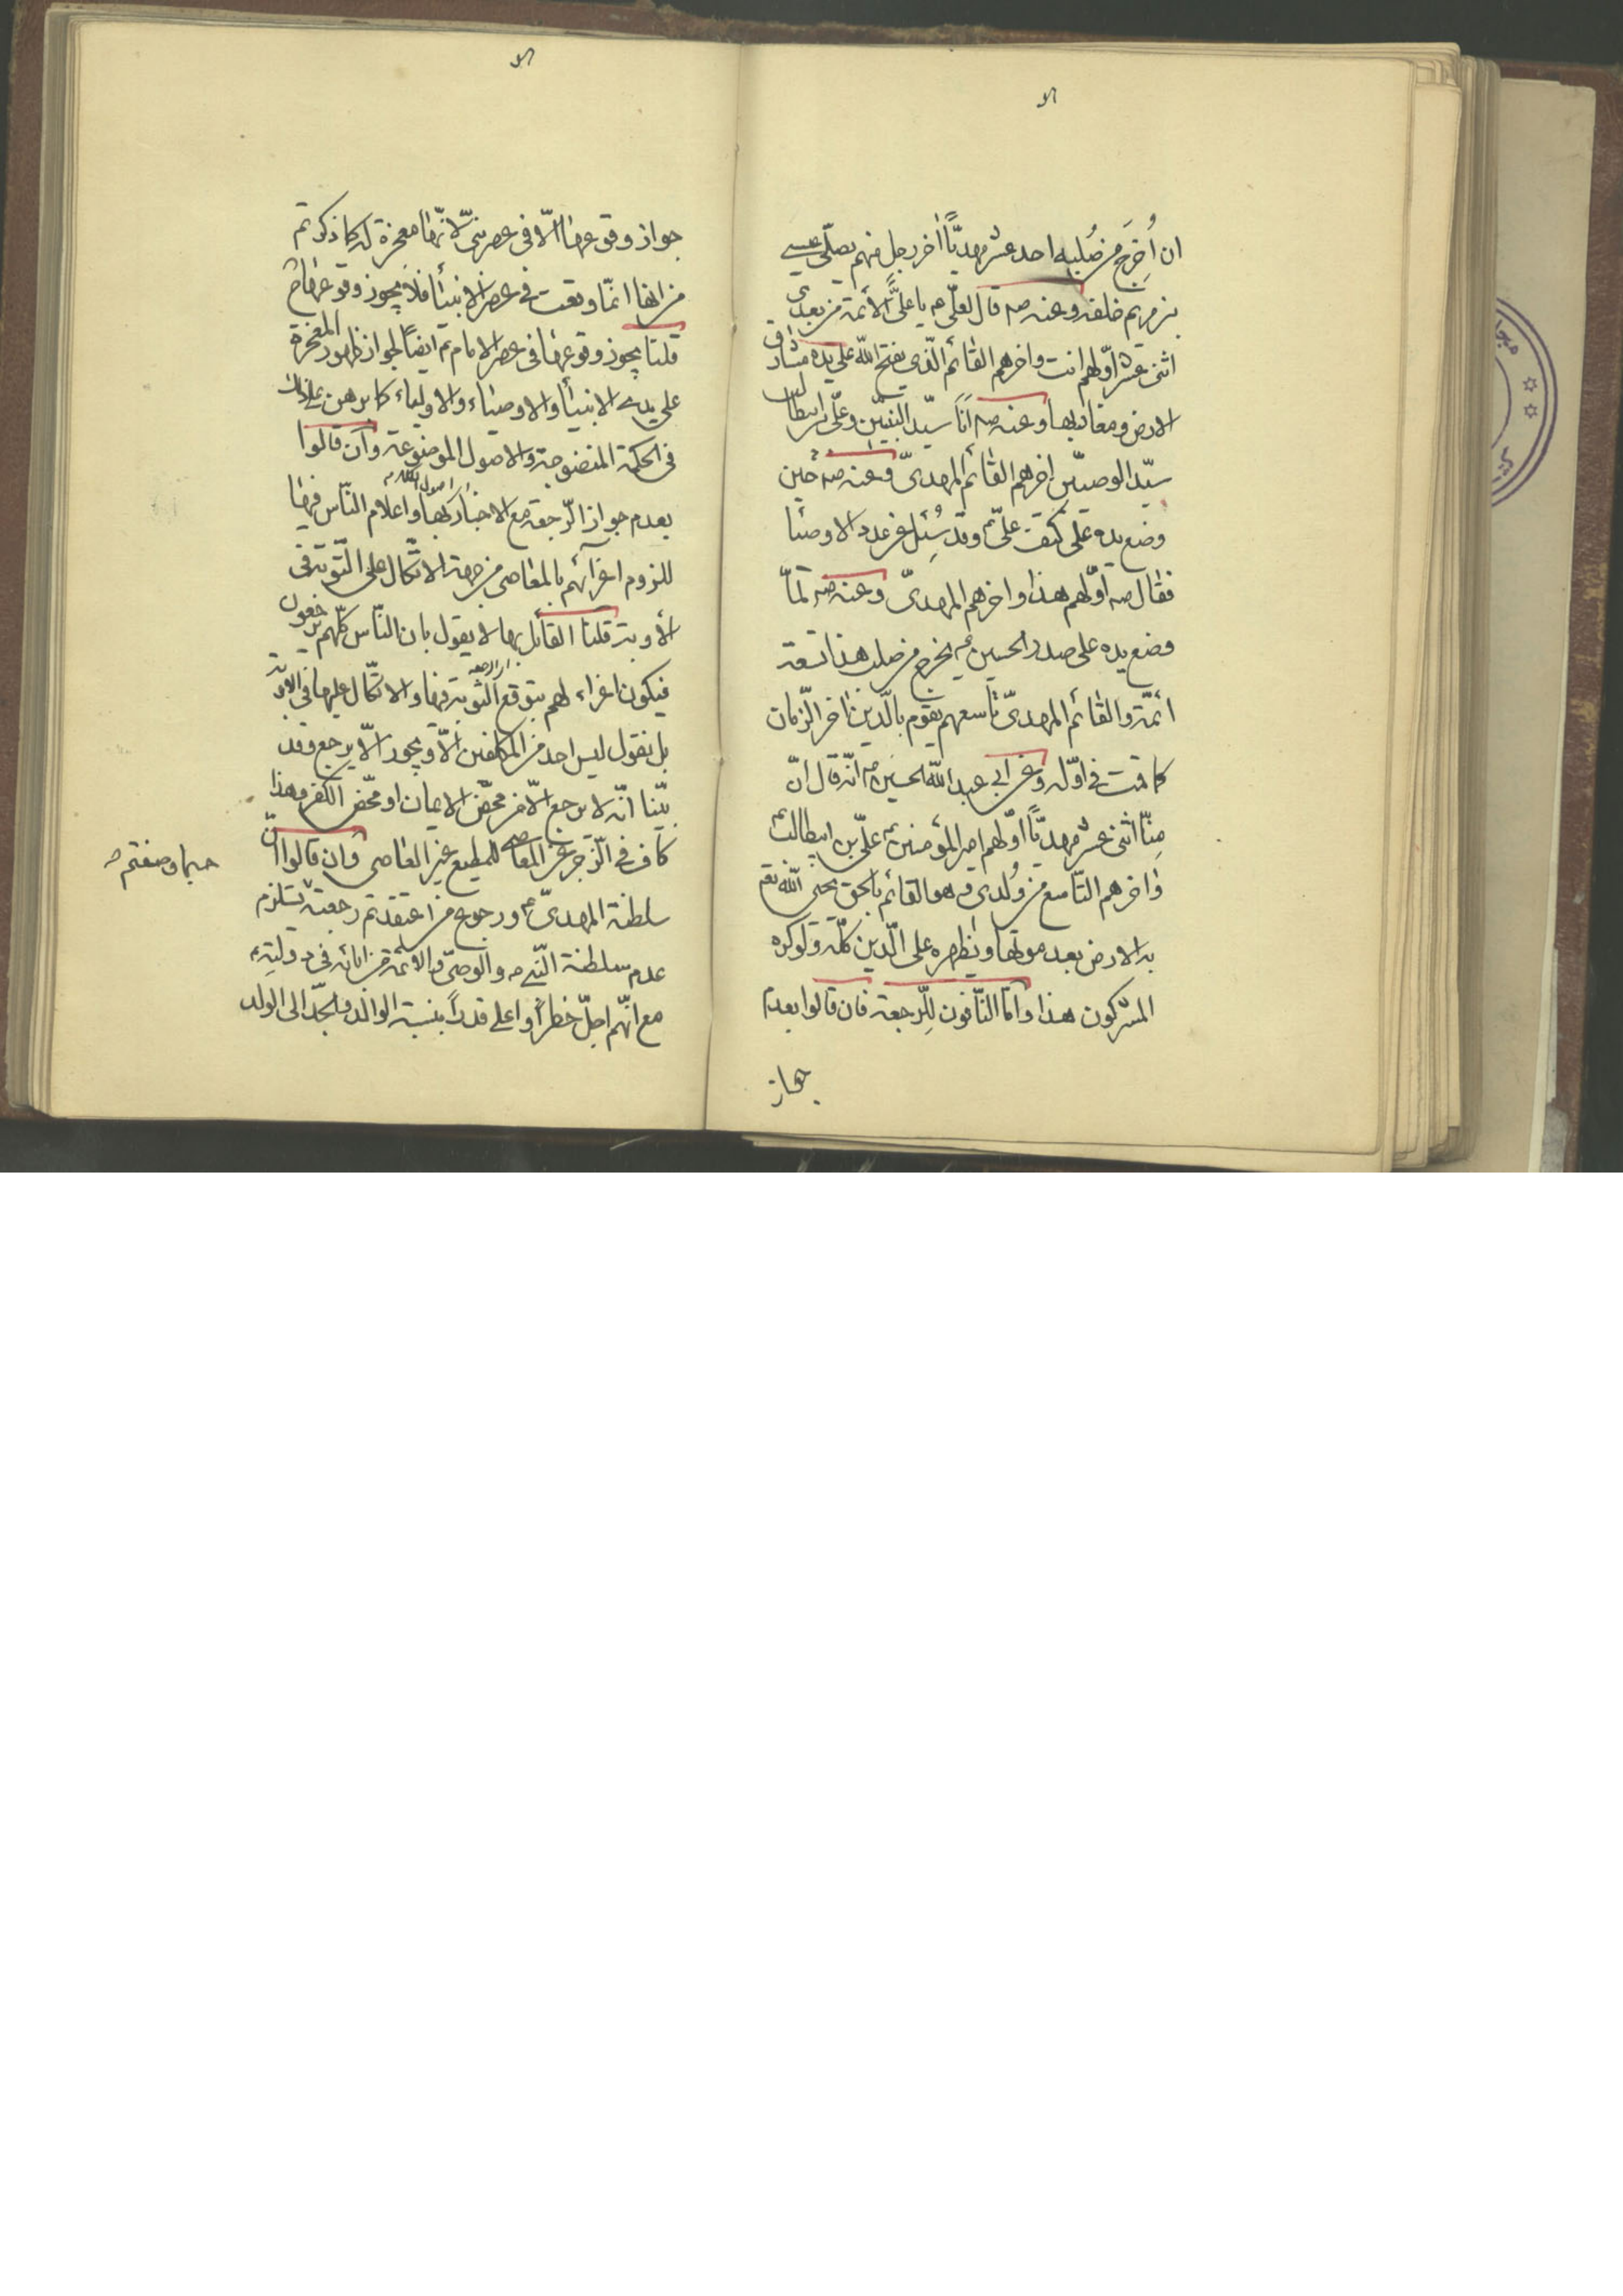 ان أُخرِجَ من صُلبِه احد عشر مهديّاً اخر رجل منهم يصلّى عيسى
بن مريم خلفه وعنه صه قال لعلّى عم يا علىُّ الأئمّة من بعدى
اثنى عشر اوّلهم انت واخرهم القائم الّذى يفتح الله على يده مشارق
الارض ومغاربها وعنه صه انا سيّد النبيّين وعلىّ بن ابيطالب
سيّد الوصيّين اخرهم القائم المهدىّ وعنه صه حين
وضع يده على كتف علىّ عم وقد سُئِل عن عدد الاوصيا
فقال صه اوّلهم هذا واخرهم المهدىّ وعنه صه لمّا
وضع يده على صدر الحسين عم يخرج من صلب هذا تسعة
ائمّة والقائم المهدىّ تاسعهم يقوم بالدّين اخر الزّمان
كما قمت فى اوّله وعن ابى عبد الله الحسين عم انّه قال انّ
مِنّا اثنى عشر مهديّاً اوّلهم امير المؤمنين عم علىّ بن ابيطالب عم
واخرهم التّاسع من وُلدى وهو القائم بالحق يحيى الله تعم
به الارض بعد موتها ويظهره على الدّين كلّه ولو كره
المشركون هذا وامّا النّافون لِلرّجعة فان قالوا بعدم
جواز
جواز وقوعها الّا فى عصر نبىّ لانّها معجزة له كما ذكرتم
من انها انمّا وقعت فى عصر الانبيأ فلا يجوز وقوعها ح
قلنا يجوز وقوعها فى عصر الامام عم ايضاً لجواز ظهور المعجزة
على يدى الانبيأ والاوصياء والاولياء كما برهن على ذلك
فى الحكمة المنضوجة والاصول الموضوعة وان قالوا
اصول الكلام
بعدم جواز الرّجعة مع الاخبار بها واعلام النّاس فيها
للزوم اغرآئهم بالمعاصى من جهة الاتّكال على التّوبة فى
الأوبة قلنا القائل بها لا يقول بان النّاس كلّهم يرجعون
فيكون اغراء لهم بتوقع التّوبة فيها والاتّكال عليها فى الاوبة
بل نقول ليس احد من المكلفين الّا ويجوز الّا يرجع وقد
بيّنا انّه لا يرجع الّا من محّض الايمان او محّض الكفر وهذا
كاف فى الزّجر عن المعاصى للمطيع غير العاصى وان قالوا انّ
سلطنة المهدىّ عم ورجوع من اعتقدتم رجعته تستلزم
عدم سلطنة النّبى صه والوصىّ والائمّة من ابائه فى دولتِه
مع انّهم اجلّ خطراً واعلى قدراً بنسبة الوالد والجدّ الى الولد